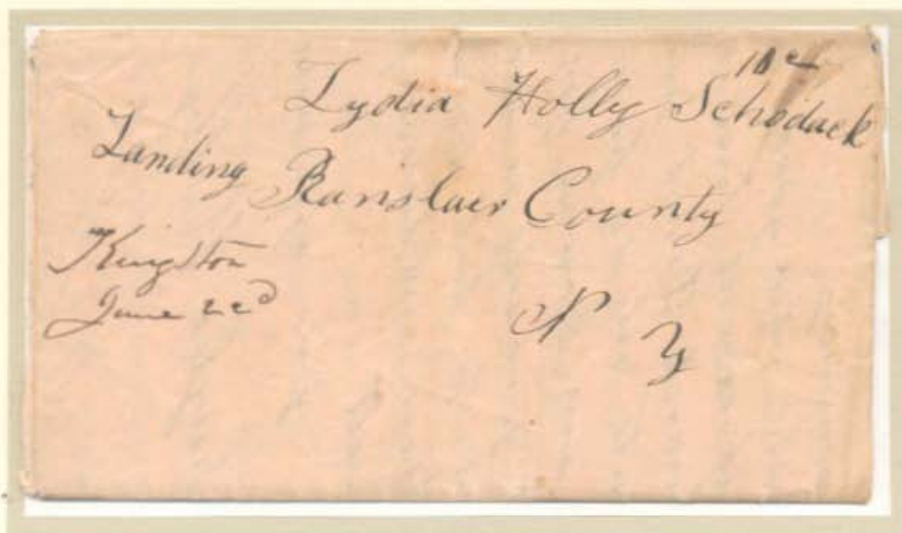 10c
Lydia Holly Schodack
Landing Ranslaer County
Kingston
June 22d
N Y